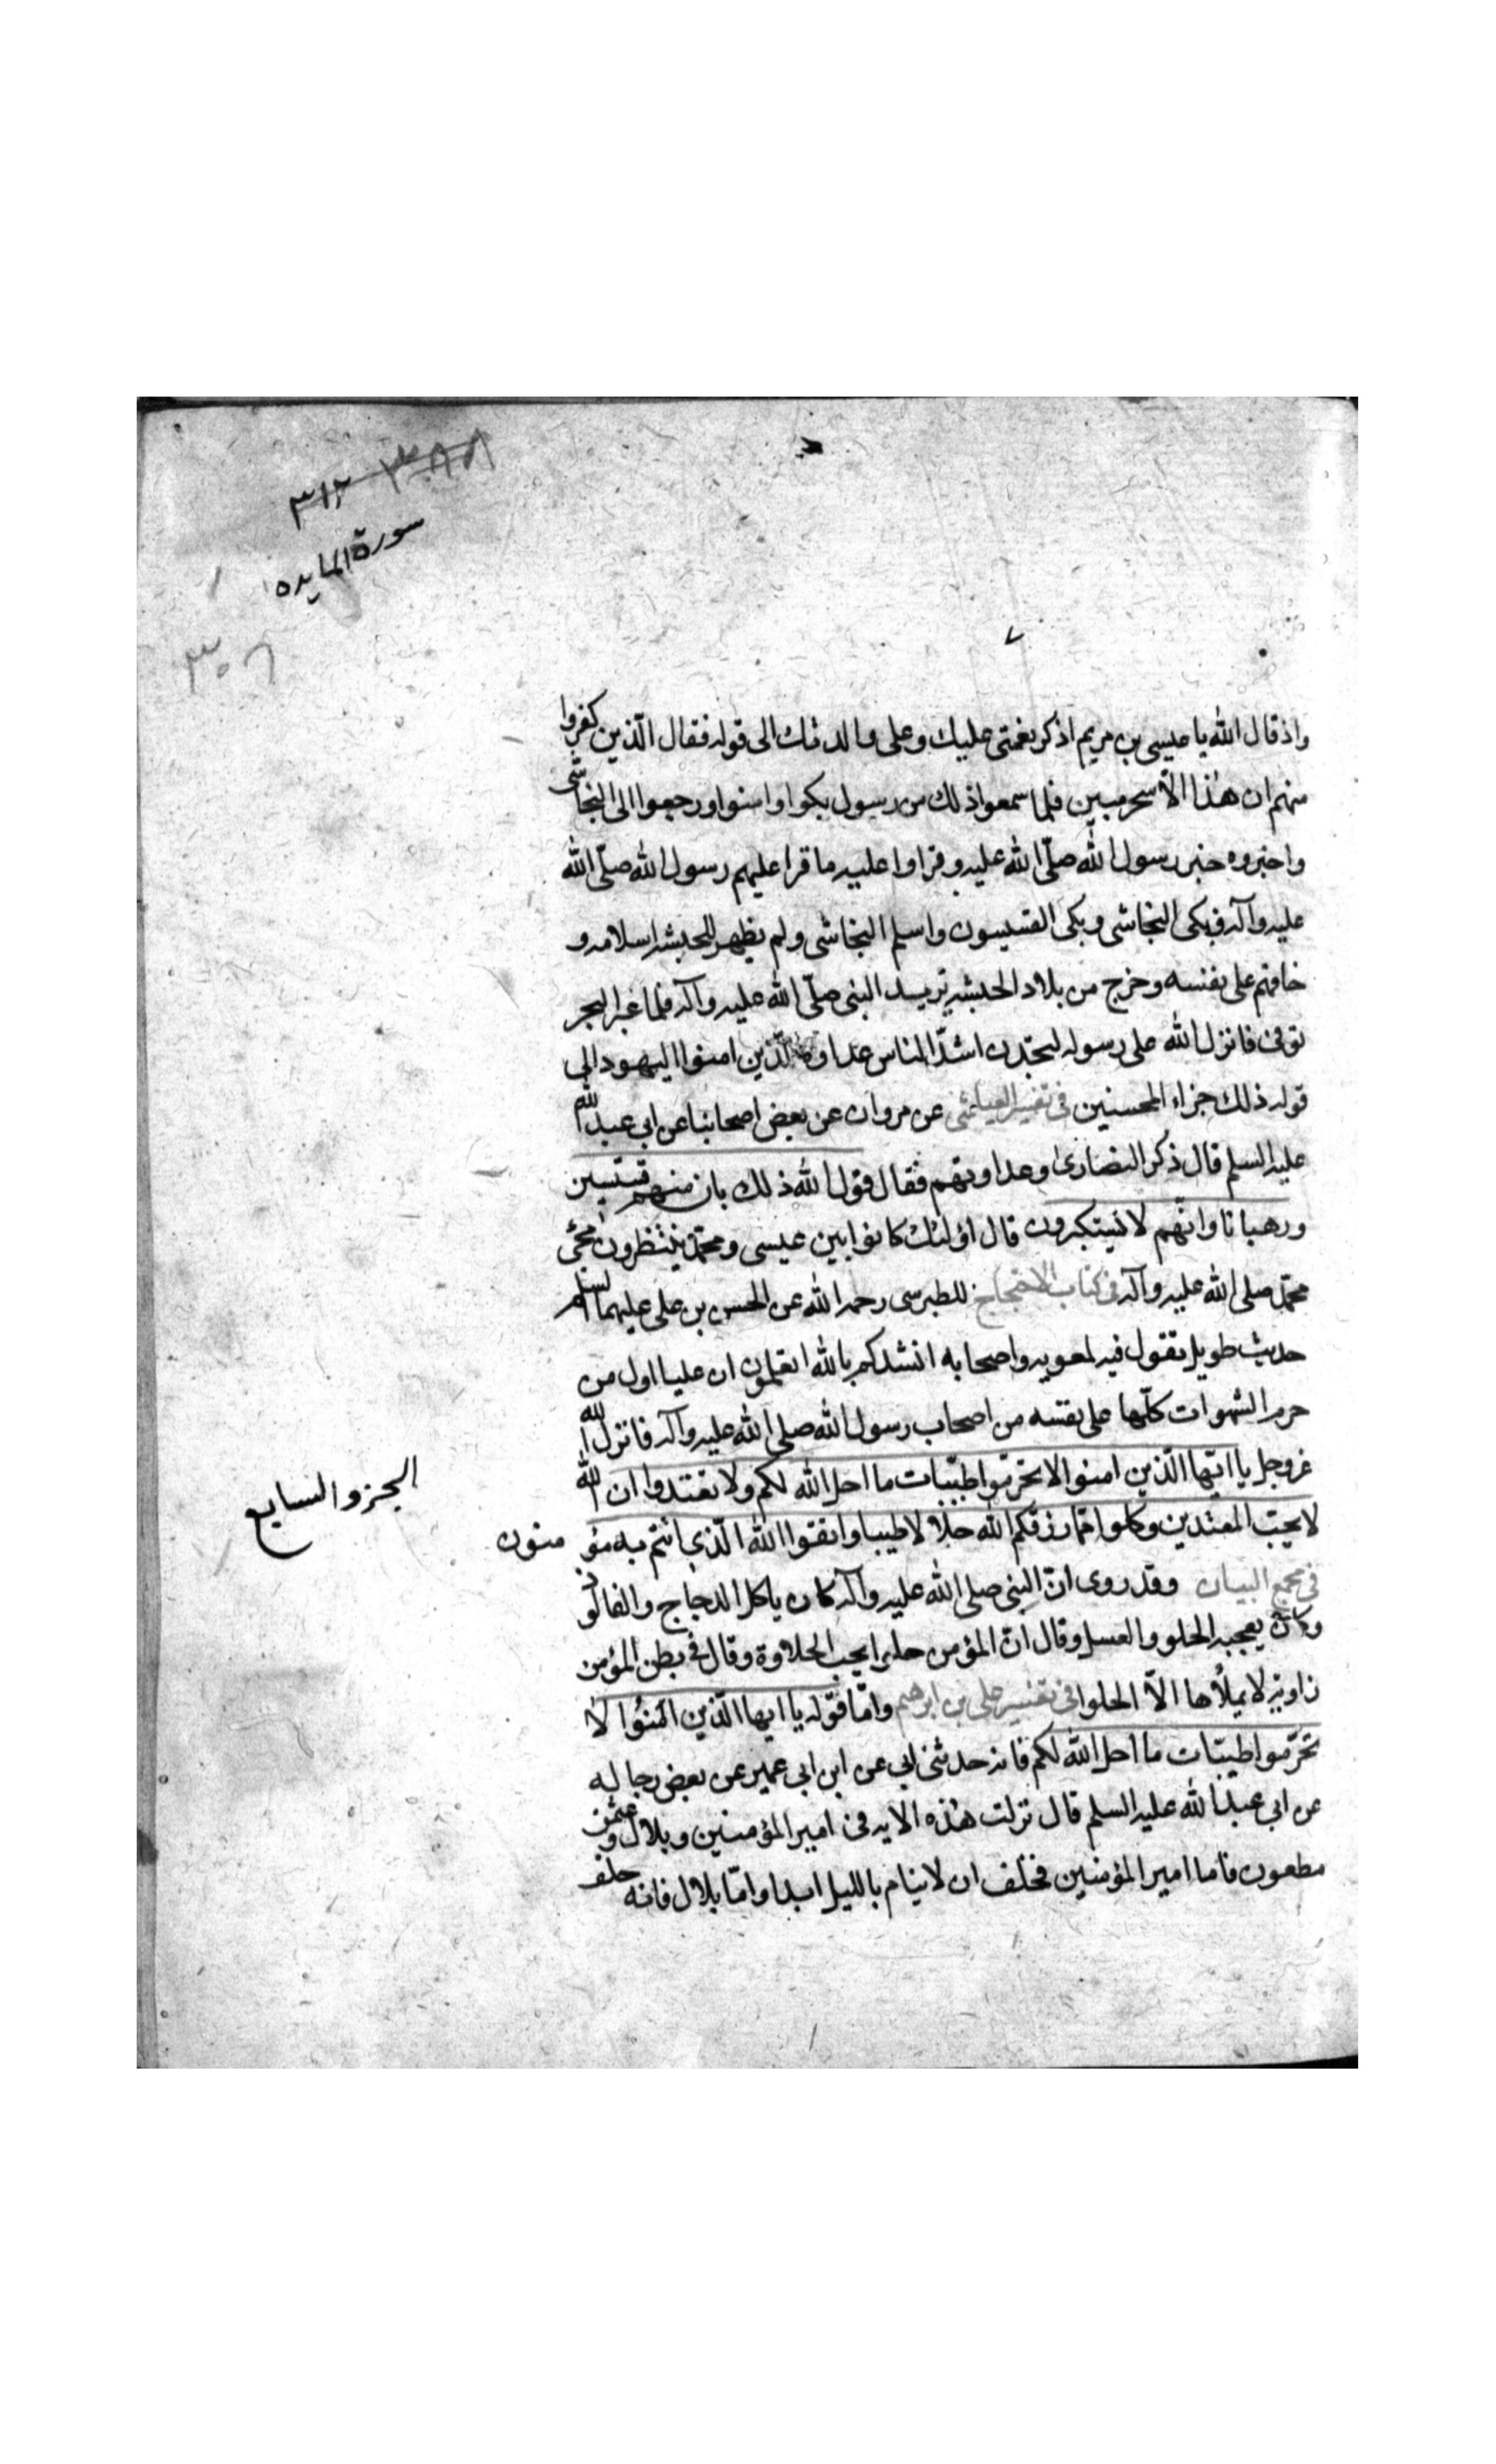 ٣١٢
سورة المايده
واذ قال الله يا عيسى بن مريم اذكر نعمتى عليك وعلى والدتك الى قوله فقال الّذين كفروا
منهم ان هذا الّا سحر مبين فلما سمعوا ذلك من رسول بكوا وامنوا ورجعوا الى النجاشى
واخبروه خبر رسول الله صلّى الله عليه وقراوا عليه ما قرا عليهم رسول الله صلّى الله
عليه وآله فبكى النجاشى وبكى القسيسون واسلم النجاشى ولم يظهر للحبشه اسلامه و
خافهم على نفسه وخرج من بلاد الحبشه يريد النبى صلّى الله عليه وآله فلما عبر البحر
توفى فانزل الله على رسوله لتجدن اشدّ الناس عداوة للّذين امنوا اليهود الى
قوله ذلك جزاء المحسنين فى تفسير العياشى عن مروان عن بعض اصحابنا عن ابى عبد الله
عليه السلم قال ذكر النصارى وعداوتهم فقال قول الله ذلك بان منهم قسّيسين
ورهبانا وانّهم لا يستكبرون قال اولئك كانوا بين عيسى ومحمّد ينتظرون مجئ
محمّد صلى الله عليه وآله فى كتاب الاحتجاج للطبرسى رحمه الله عن الحسن بن على عليهما السلم
حديث طويل يقول فيه لمعويه واصحابه انشدكم بالله اتعلمون ان عليا اول من
حرم الشهوات كلّها على نفسه من اصحاب رسول الله صلى الله عليه وآله فانزل الله
عزوجل يا ايّها الّذين امنوا لا تحرّموا طيّبات ما احل الله لكم ولا تعتدوا ان الله
الجزو السابع
لا يحبّ المعتدين وكلوا ممّا رزقكم الله حلالا طيبا واتقوا الله الّذى انتم به مؤ منون
فى مجمع البيان وقد روى انّ النبى صلى الله عليه وآله كان ياكل الدجاج والفالوذ
وكان يعجبه الحلو والعسل وقال انّ المؤمن حلو يحب الحلاوة وقال فى بطن المؤمن
زاوية لا يملأها الّا الحلوا فى تفسير على بن ابرهيم وامّا قوله يا ايها الّذين امنوا لا
تحرّموا طيبّات ما احل الله لكم فانه حدثنى ابى عن ابن ابى عمير عن بعض رجاله
عن ابى عبد الله عليه السلم قال نزلت هذه الايه فى امير المؤمنين وبلال وعثمن
مظعون فاما امير المؤمنين فحلف ان لا ينام بالليل ابدا وامّا بلال فانه حلف